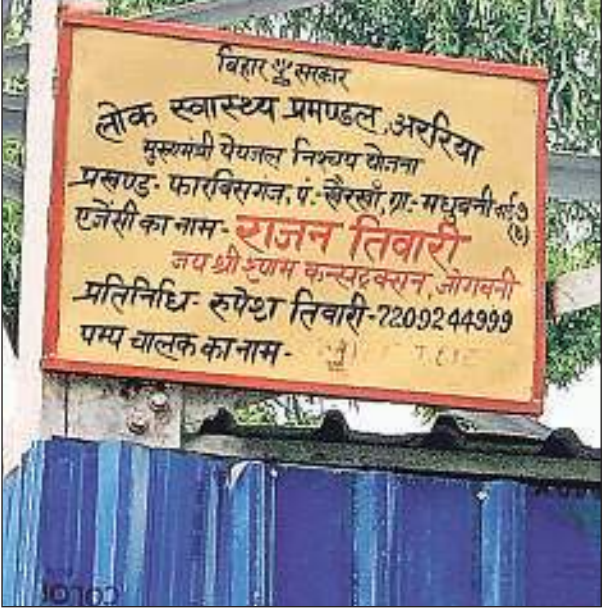 बिहार सरकार
लोक स्वास्थ्य प्रमण्डल, अररिया
मुख्यमंत्री पेयजल निश्चय योजना
प्रखण्ड- फारबिसगंज, पं.- खैरखाँ, ग्रा.- मधुबनी वार्ड 7
एजेंसी का नाम- राजन तिवारी
जय श्री श्याम कन्सट्रक्शन, जोगबनी
प्रतिनिधि- रुपेश तिवारी-7209244999
पम्प चालक का नाम-
COLOR